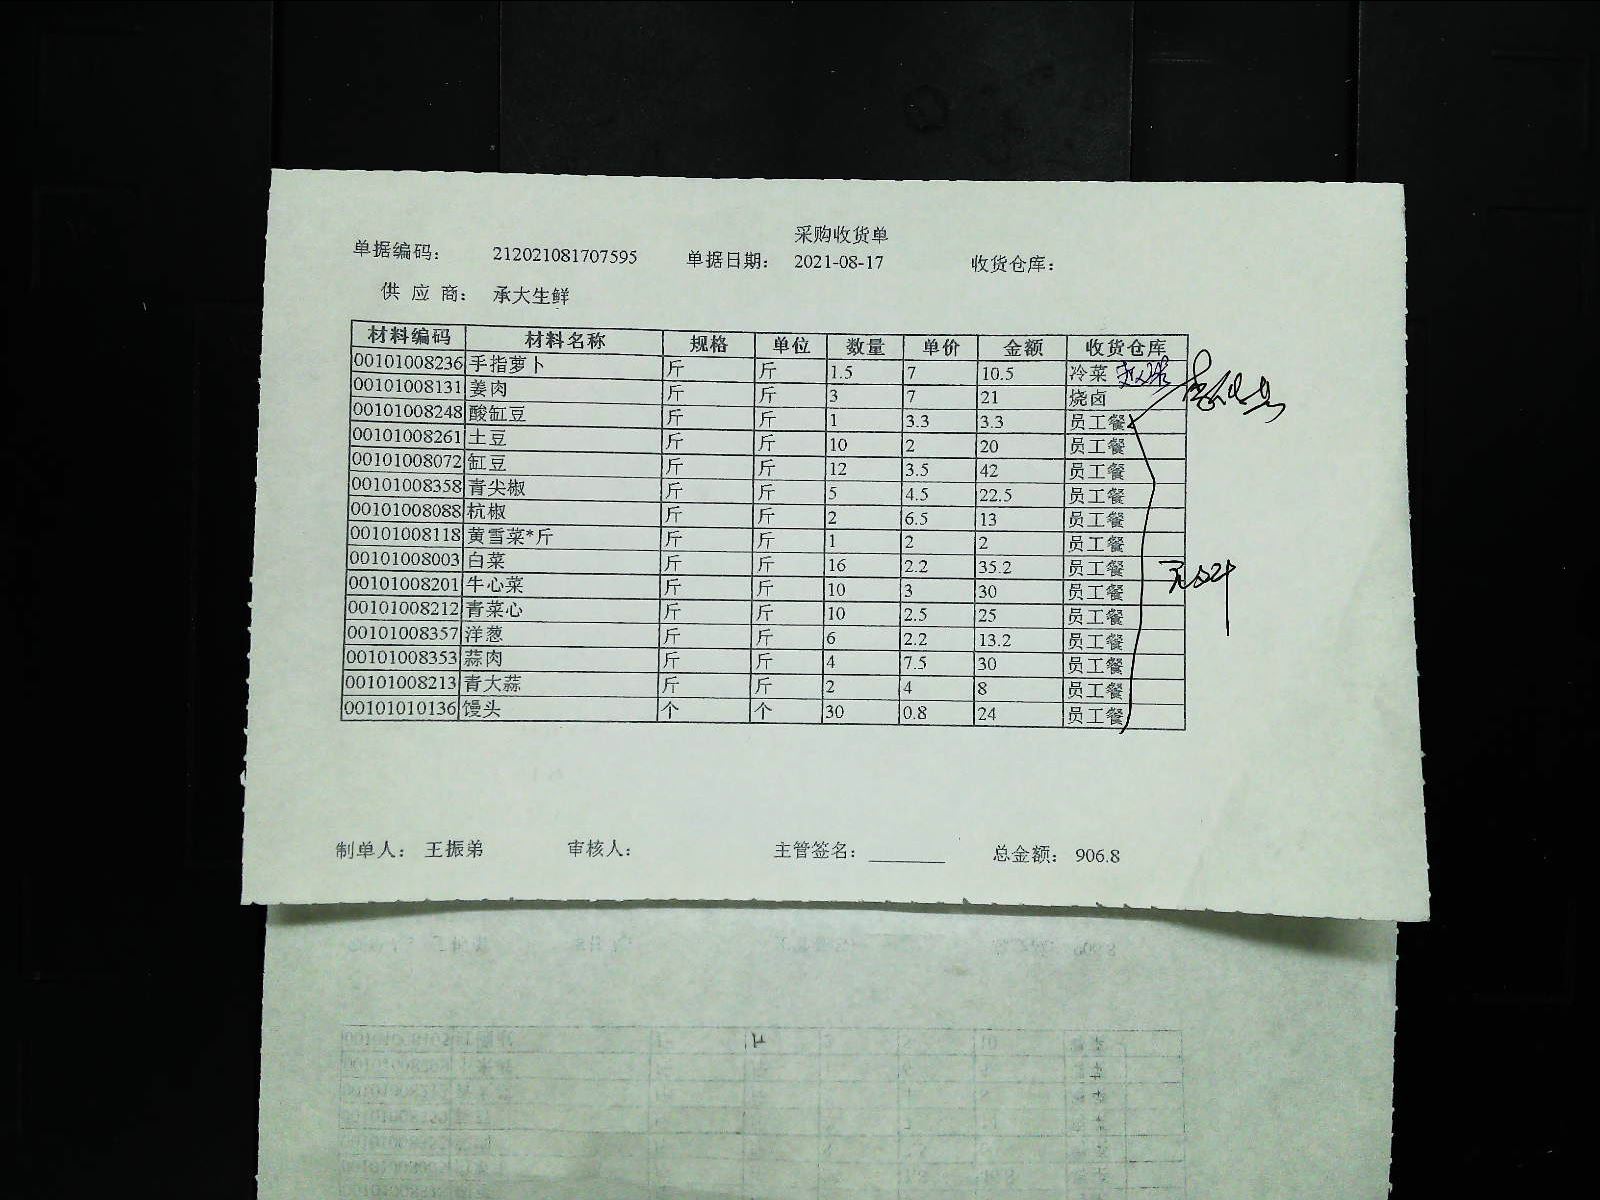 采购收货单
单据编码: 212021081707595 单据日期: 2021-08-17 收货仓库:
供 应 商: 承大生鲜
材料编码 材料名称 规格 单位 数量 单价 金额 收货仓库
00101008236 手指萝卜 斤 斤 1.5 7 10.5 冷菜
00101008131 姜肉 斤 斤 3 7 21 烧卤
00101008248 酸缸豆 斤 斤 1 3.3 3.3 员工餐
00101008261 土豆 斤 斤 10 2 20 员工餐
00101008072 缸豆 斤 斤 12 3.5 42 员工餐
00101008358 青尖椒 斤 斤 5 4.5 22.5 员工餐
00101008088 杭椒 斤 斤 2 6.5 13 员工餐
00101008118 黄雪菜*斤 斤 斤 1 2 2 员工餐
00101008003 白菜 斤 斤 16 2.2 35.2 员工餐
00101008201 牛心菜 斤 斤 10 3 30 员工餐
00101008212 青菜心 斤 斤 10 2.5 25 员工餐
00101008357 洋葱 斤 斤 6 2.2 13.2 员工餐
00101008353 蒜肉 斤 斤 4 7.5 30 员工餐
00101008213 青大蒜 斤 斤 2 4 8 员工餐
00101010136 馒头 个 个 30 0.8 24 员工餐
制单人: 王振弟 审核人: 主管签名: 总金额: 906.8